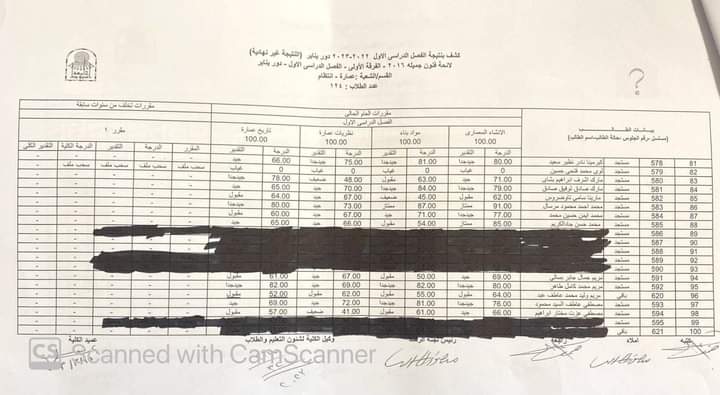 كشف بنتيجة الفصل الدراسي الاول ٢٠٢٢-٢٠٢٣ دور يناير (النتيجة غير نهائية)
لائحة فنون جميله ٢٠١٦ - الفرقة الأولى - الفصل الدراسي الاول - دور يناير
القسم/الشعبة : عمارة - انتظام
عدد الطلاب : ١٢٤
بيانات الطالب مقررات العام الحالي مقررات تخلف من سنوات سابقة
(مسلسل-رقم الجلوس-حالة الطالب-اسم الطالب) الفصل الدراسي الأول
الانشاء المعماري مواد بناء نظريات عمارة تاريخ عمارة مقرر ١
100.00 100.00 100.00 100.00
الدرجة التقدير الدرجة التقدير الدرجة التقدير الدرجة التقدير المقرر الدرجة التقدير الدرجة الكلية التقدير الكلي
81 578 مستجد كيرمينا نادر نظير سعيد 80.00 جيدجدا 81.00 جيدجدا 75.00 جيدجدا 66.00 جيد - - - - -
82 579 مستجد لؤى محمد فتحي حسين 0 غياب 0 غياب 0 غياب 0 غياب سحب ملف سحب ملف سحب ملف سحب ملف
83 580 مستجد ماركه اشرف ابراهيم بشاى 71.00 جيد 63.00 مقبول 48.00 ضعيف 78.00 جيدجدا - - - - -
84 581 مستجد ماركه صادق توفيق صادق 79.00 جيدجدا 84.00 جيدجدا 70.00 جيد 65.00 جيد - - - - -
85 582 مستجد مارينا سامي تاوضروس 62.00 مقبول 45.00 ضعيف 67.00 جيد 64.00 مقبول - - - - -
86 583 مستجد محمد احمد محمود مرسال 91.00 ممتاز 87.00 ممتاز 73.00 جيد 80.00 جيدجدا - - - - -
87 584 مستجد محمد ايمن حسين محمد 77.00 جيدجدا 71.00 جيد 67.00 جيد 60.00 مقبول - - - - -
88 585 مستجد محمد حسن جادالكريم 85.00 ممتاز 54.00 مقبول 66.00 جيد 65.00 جيد - - - - -
89 586 مستجد
90 587 مستجد
91 588 مستجد
92 589 مستجد
93 590 مستجد
94 591 مستجد مريم جمال جابر 69.00 جيد 50.00 مقبول 67.00 جيد 61.00 مقبول
95 592 مستجد مريم محمد كامل طاهر 80.00 جيدجدا 82.00 جيدجدا 69.00 جيد 82.00 جيدجدا
96 620 باقي مريم وليد محمد عاطف عبد 64.00 مقبول 55.00 مقبول 62.00 مقبول 52.00 مقبول
97 593 مستجد مصطفى عاطف السيد محمود 76.00 جيدجدا 81.00 جيدجدا 72.00 جيد 69.00 جيد
98 594 مستجد مصطفى عزت مختار ابراهيم 66.00 جيد 61.00 مقبول 41.00 ضعيف 57.00 مقبول
99 595 مستجد
100 621 باقي
كتبه املاه راجعه رئيس لجنة وكيل الكلية لشئون التعليم والطلاب عميد الكلية
CS Scanned with CamScanner